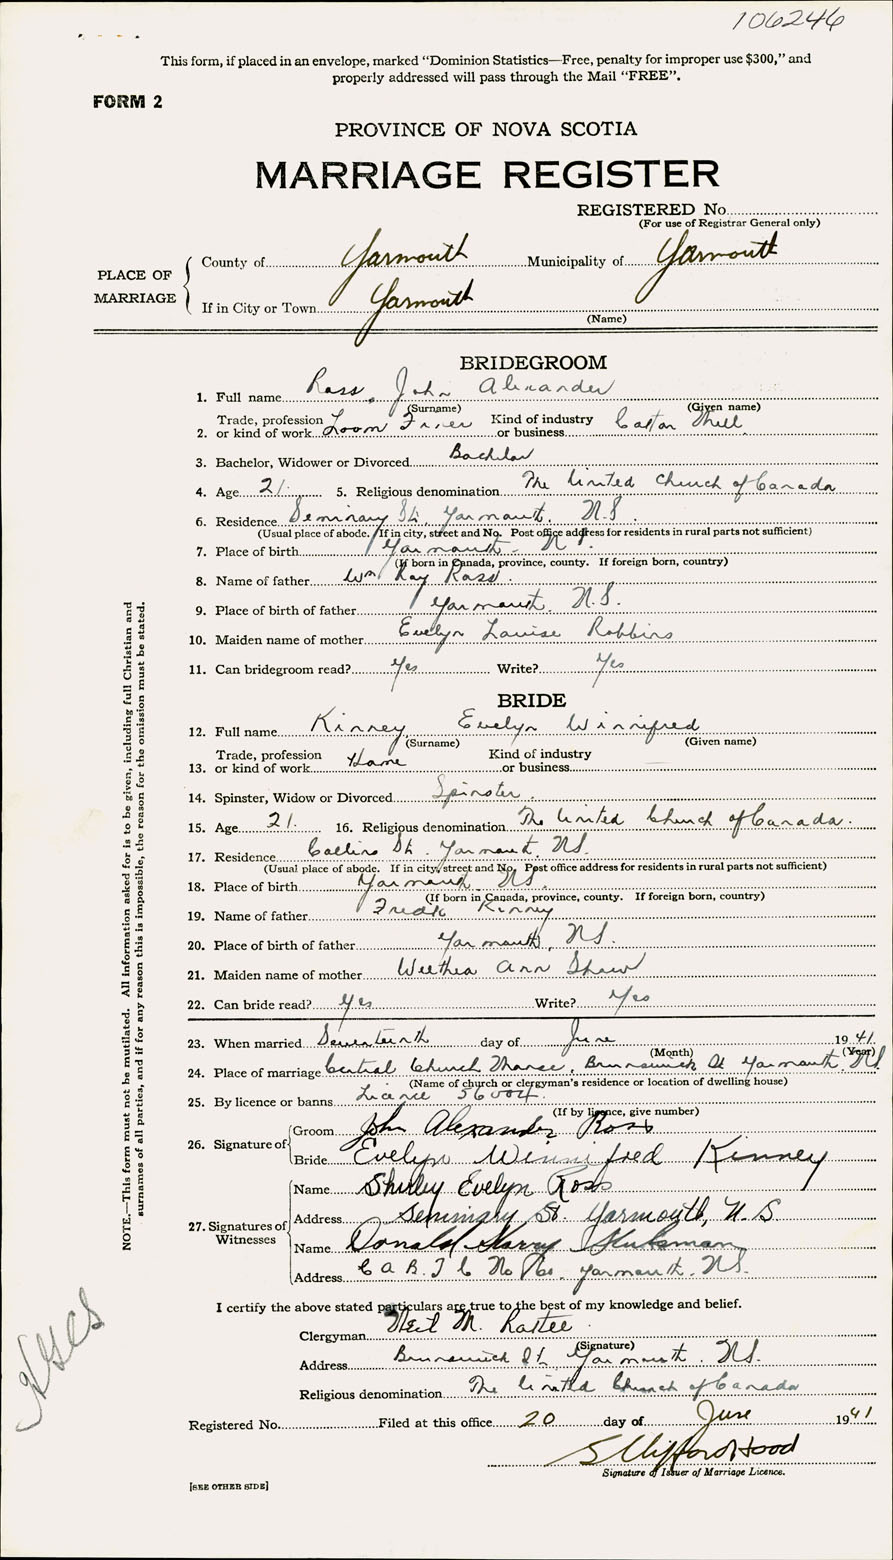 106246
This form, if placed in an envelope, marked “Dominion Statistics—Free, penalty for improper use $300,” and
properly addressed will pass through the Mail “FREE”.
FORM 2
PROVINCE OF NOVA SCOTIA
MARRIAGE REGISTER
REGISTERED No.
(For use of Registrar General only)
PLACE OF MARRIAGE
County of Yarmouth Municipality of Yarmouth
If in City or Town Yarmouth
(Name)
BRIDEGROOM
1. Full name Ross, John Alexander
(Surname) (Given name)
2. Trade, profession or kind of work Loom Fixer Kind of industry or business Cotton Mill
3. Bachelor, Widower or Divorced Bachelor
4. Age 21. 5. Religious denomination The United Church of Canada
6. Residence Seminary St., Yarmouth, N.S.
(Usual place of abode. If in city, street and No. Post office address for residents in rural parts not sufficient)
7. Place of birth Yarmouth - N.S.
(If born in Canada, province, county. If foreign born, country)
8. Name of father Wm Ray Ross.
9. Place of birth of father Yarmouth, N.S.
10. Maiden name of mother Evelyn Louise Robbins
11. Can bridegroom read? Yes Write? Yes
BRIDE
12. Full name Kinney, Evelyn Winnifred
(Surname) (Given name)
13. Trade, profession or kind of work Home Kind of industry or business
14. Spinster, Widow or Divorced Spinster.
15. Age 21. 16. Religious denomination The United Church of Canada.
17. Residence Collins St. Yarmouth, N.S.
(Usual place of abode. If in city, street and No. Post office address for residents in rural parts not sufficient)
18. Place of birth Yarmouth, N.S.
(If born in Canada, province, county. If foreign born, country)
19. Name of father Fredk Kinney
20. Place of birth of father Yarmouth, N.S.
21. Maiden name of mother Ann Shaw
22. Can bride read? Yes Write? Yes
23. When married Seventeenth day of June 1941.
(Month) (Year)
24. Place of marriage Central Church Manse, Brunswick St Yarmouth, N.S.
(Name of church or clergyman's residence or location of dwelling house)
25. By licence or banns Licence 56004.
(If by licence, give number)
26. Signature of Groom John Alexander Ross
Bride Evelyn Winnifred Kinney
27. Signatures of Witnesses
Name Shirley Evelyn Ross
Address Seminary St. Yarmouth, N.S
Name Donald Harry
Address Yarmouth. N.S.
I certify the above stated particulars are true to the best of my knowledge and belief.
Clergyman Neil M.
(Signature)
Address Brunswick St, Yarmouth, N.S.
Religious denomination The United Church of Canada
Registered No. Filed at this office 20 day of June 1941
S Clifford Hood
Signature of Issuer of Marriage Licence.
[SEE OTHER SIDE]
NOTE.—This form must not be mutilated. All information asked for is to be given, including full Christian and
surnames of all parties, and if for any reason this is impossible, the reason for the omission must be stated.